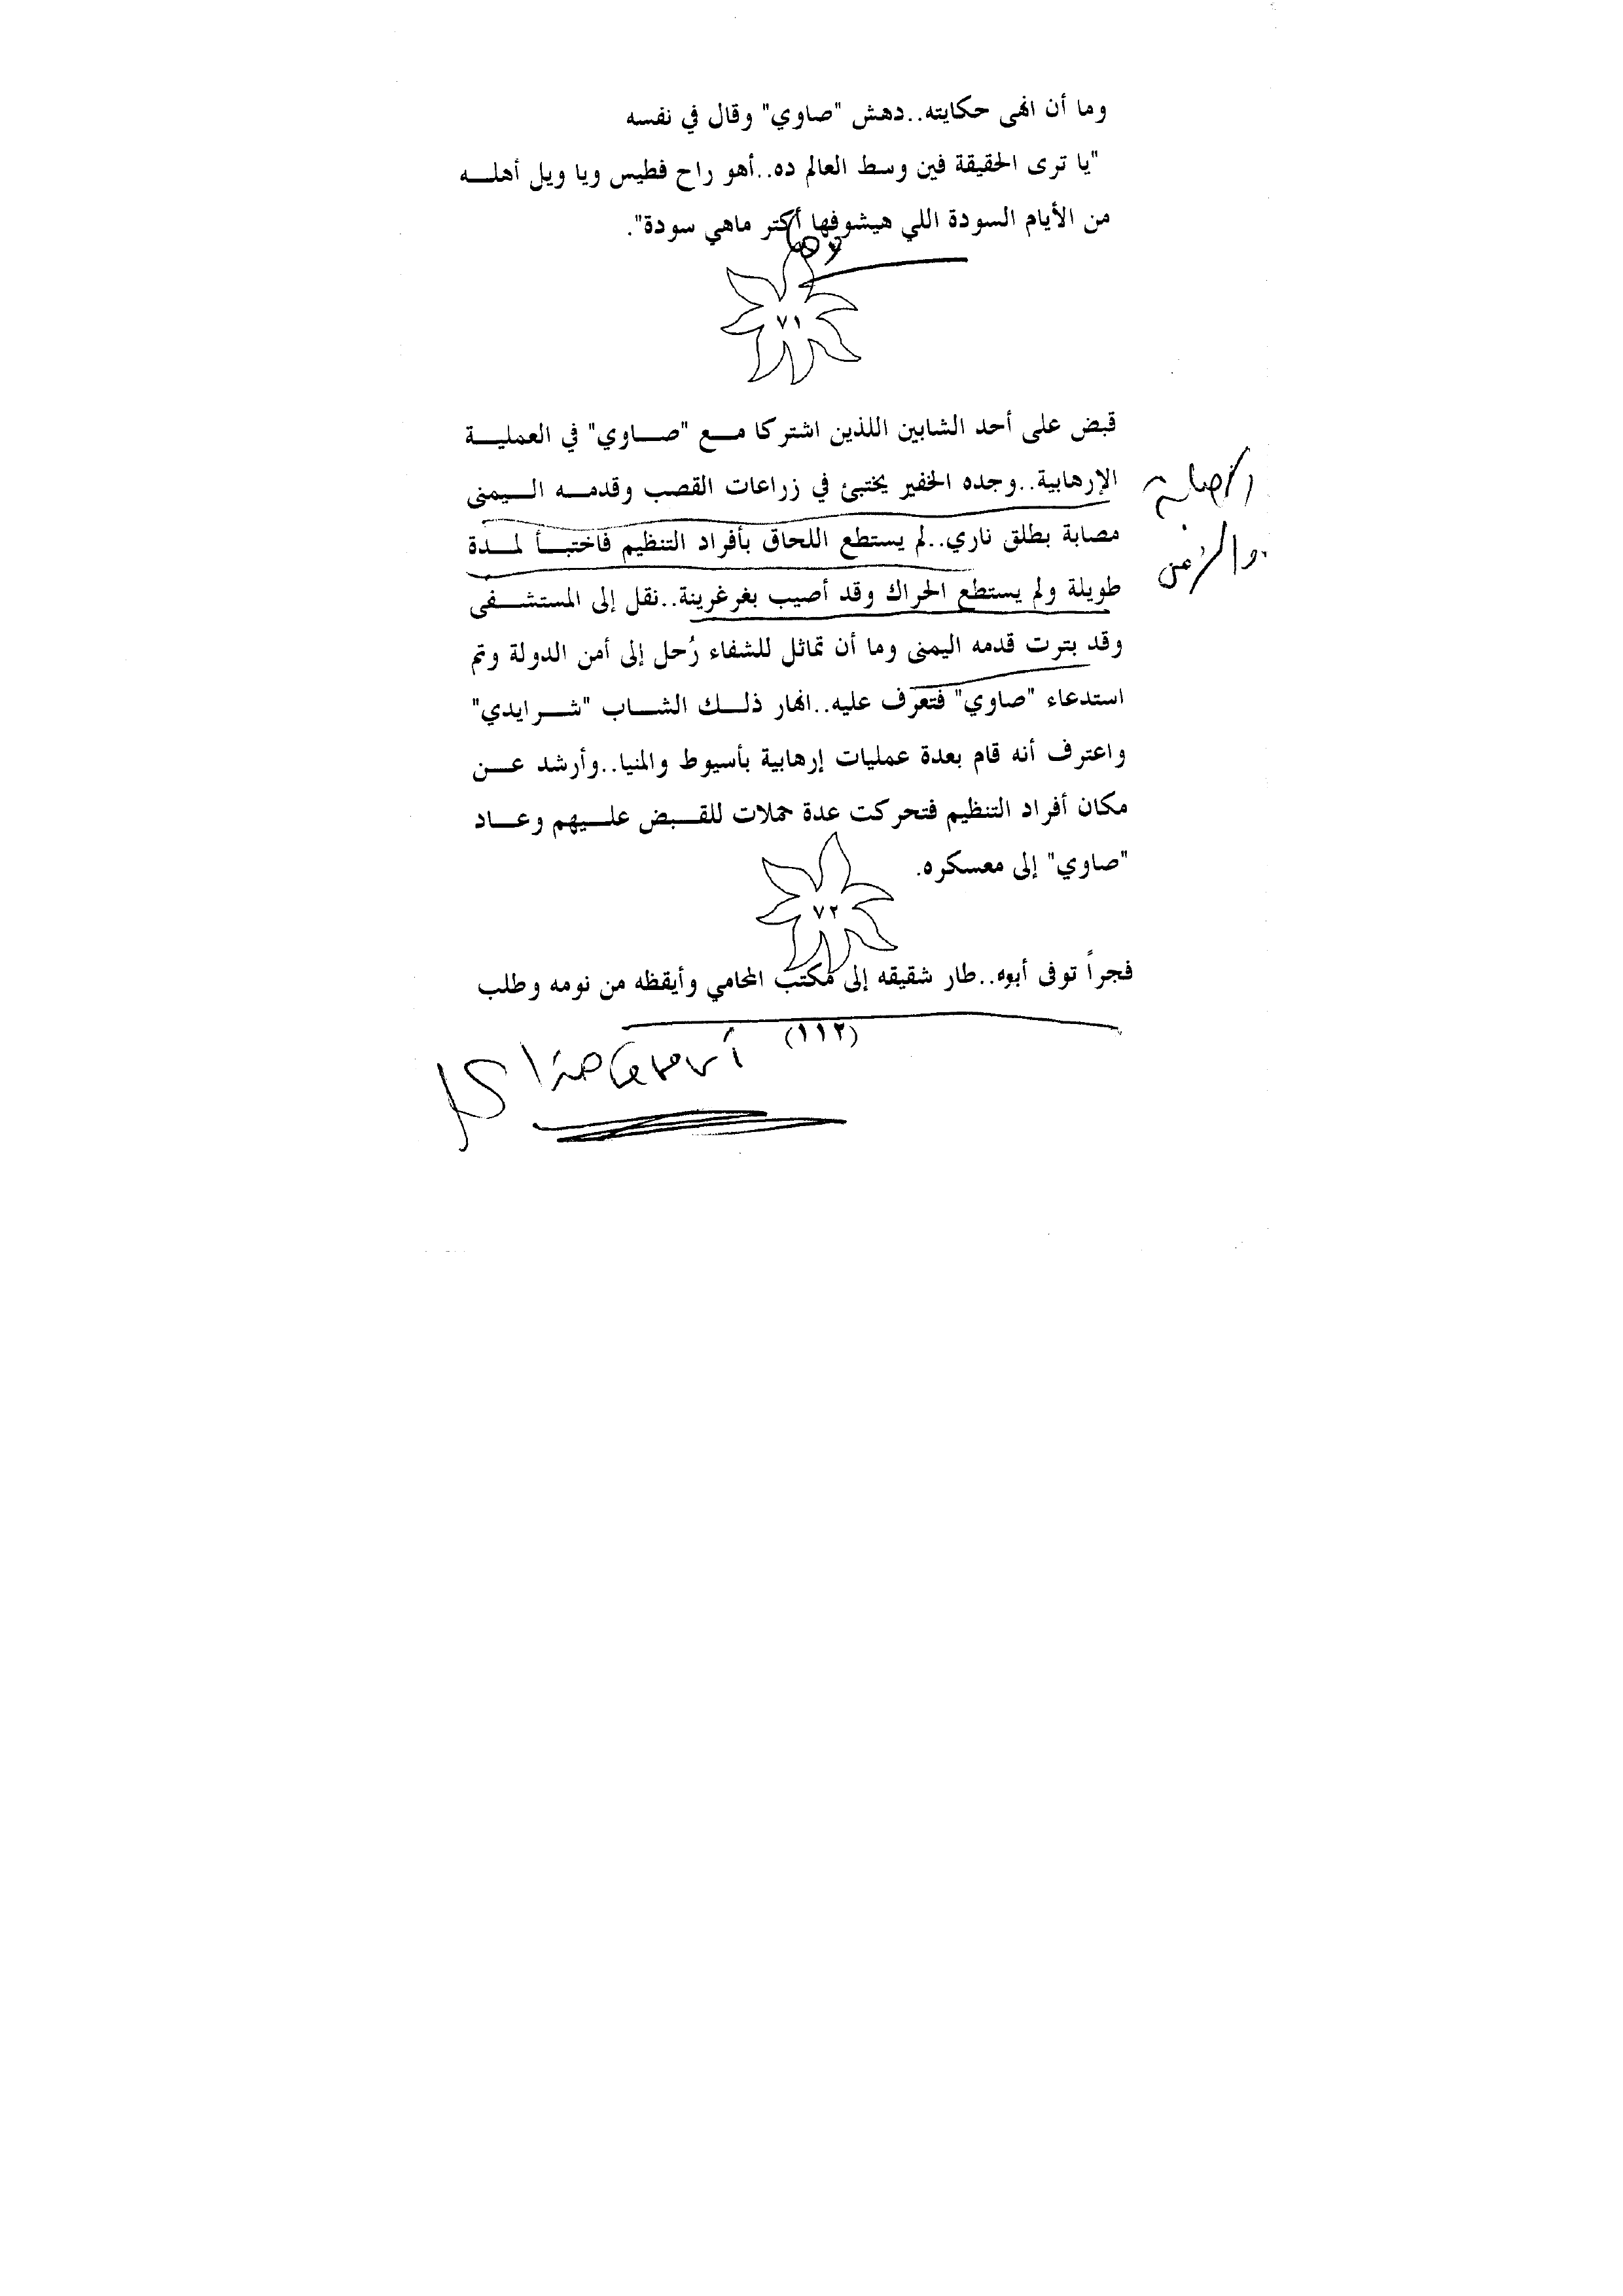 وما أن انهى حكايته..دهش "صاوي" وقال في نفسه
"يا ترى الحقيقة فين وسط العالم ده..أهو راح فطيس ويا ويل أهلـــه
من الأيام السودة اللي هيشوفها أكتر ماهي سودة".
٧١
قبض على أحد الشابين اللذين اشتركا مـــع "صـــاوي" في العمليـــة
الإرهابية..وجده الخفير يختبئ في زراعات القصب وقدمـــه الـــيمنى
مصابة بطلق ناري..لم يستطع اللحاق بأفراد التنظيم فاختبـــأ لمـــدة
طويلة ولم يستطع الحراك وقد أصيب بغرغرينة..نقل إلى المستشـــفى
وقد بترت قدمه اليمنى وما أن تماثل للشفاء رُحل إلى أمن الدولة وتم
استدعاء "صاوي" فتعرف عليه..انهار ذلـــك الشـــاب "شـــرايدي"
واعترف أنه قام بعدة عمليات إرهابية بأسيوط والمنيا..وأرشد عـــن
مكان أفراد التنظيم فتحركت عدة حملات للقـــبض علـــيهم وعـــاد
"صاوي" إلى معسكره.
٧٢
فجراً توفى أبوه..طار شقيقه إلى مكتب المحامي وأيقظه من نومه وطلب
(١١٢)
الإصابة
والزمن